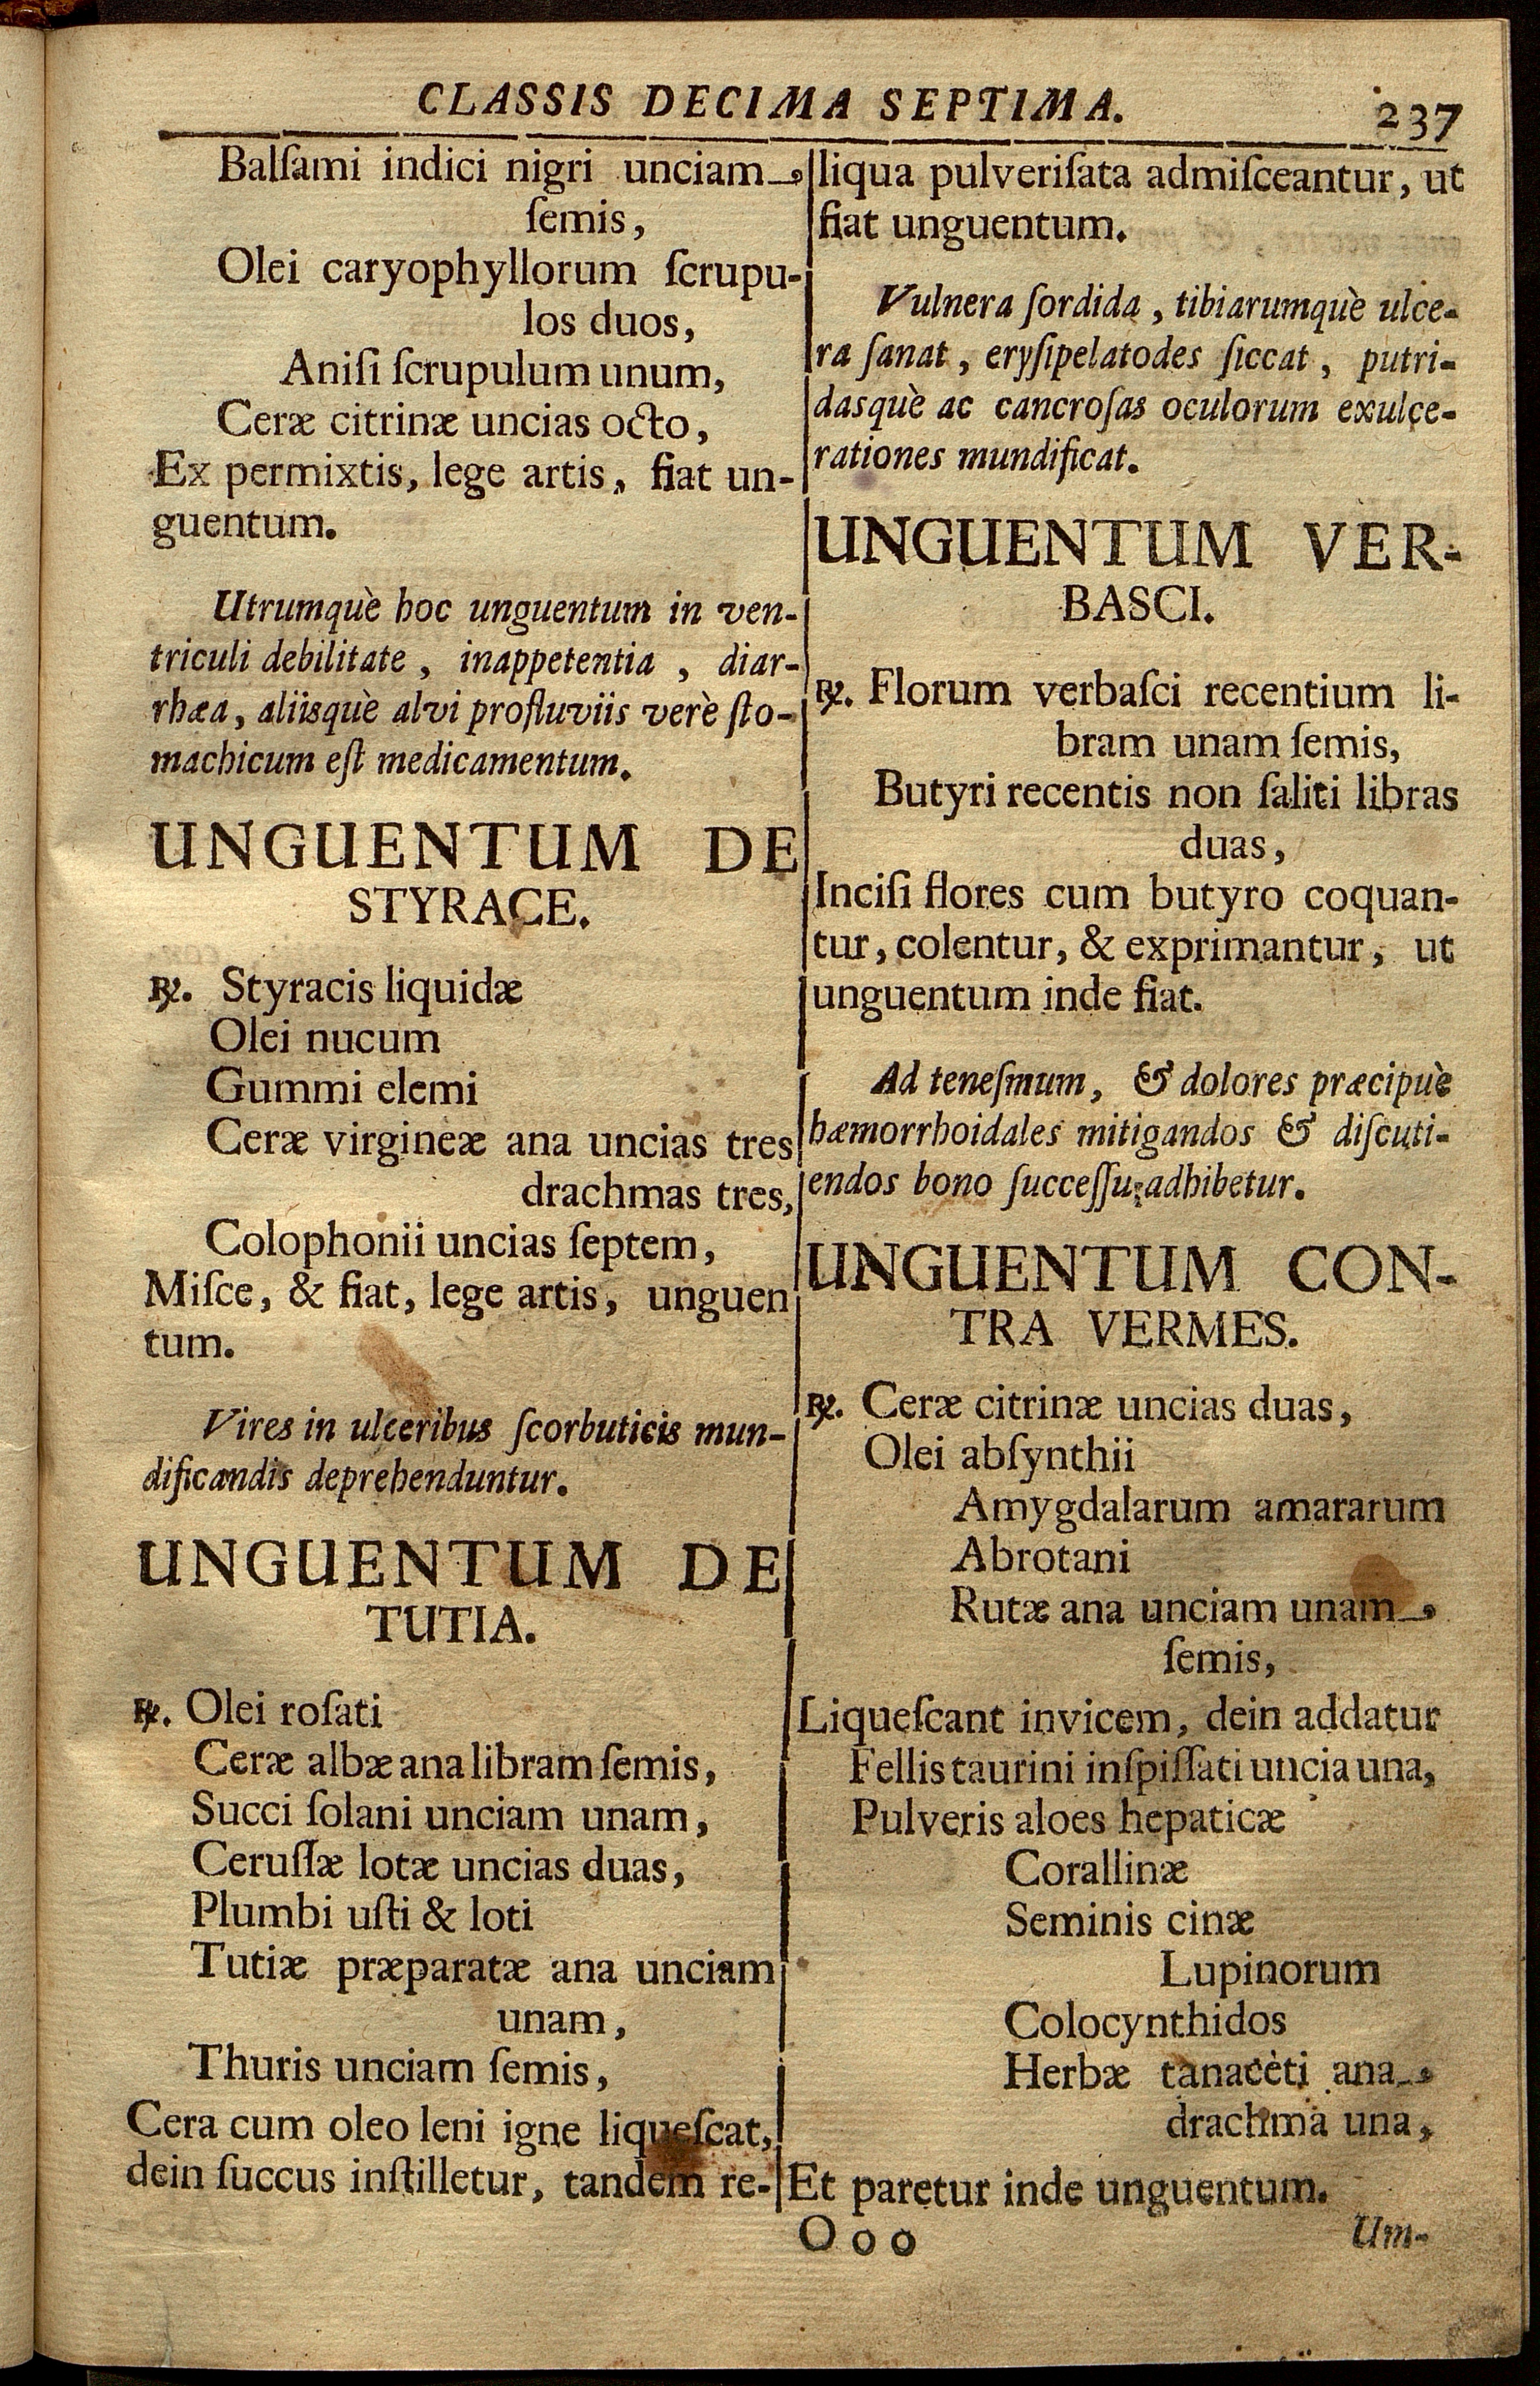 CLASSIS DECIMA SEPTIMA. 237
Balſami indici nigri unciam
ſemis,
Olei caryophyllorum ſcrupu-
los duos,
Aniſi ſcrupulum unum,
Ceræ citrinæ uncias octo,
Ex permixtis, lege artis, fiat un-
guentum.
Utrumquè hoc unguentum in ven-
triculi debilitate, inappetentia, diar-
rhæa, aliisquè alvi profluviis verè ſto-
machicum eſt medicamentum.
UNGUENTUM DE
STYRACE.
℞. Styracis liquidæ
Olei nucum
Gummi elemi
Ceræ virgineæ ana uncias tres
drachmas tres,
Colophonii uncias ſeptem,
Miſce, & fiat, lege artis, unguen
tum.
Vires in ulceribus ſcorbuticis mun-
dificandis deprehenduntur.
UNGUENTUM DE
TUTIA.
℞. Olei roſati
Ceræ albæ ana libram ſemis,
Succi ſolani unciam unam,
Ceruſſæ lotæ uncias duas,
Plumbi uſti & loti
Tutiæ præparatæ ana unciam
unam,
Thuris unciam ſemis,
Cera cum oleo leni igne liqueſcat,
dein ſuccus inſtilletur, tandem re-
liqua pulveriſata admiſceantur, ut
fiat unguentum.
Vulnera ſordida, tibiarumquè ulce-
ra ſanat, eryſipelatodes ſiccat, putri-
dasquè ac cancroſas oculorum exulce-
rationes mundificat.
UNGUENTUM VER-
BASCI.
℞. Florum verbaſci recentium li-
bram unam ſemis,
Butyri recentis non ſaliti libras
duas,
Inciſi flores cum butyro coquan-
tur, colentur, & exprimantur, ut
unguentum inde fiat.
Ad teneſmum, & dolores præcipuè
hæmorrhoidales mitigandos & diſcuti-
endos bono ſucceſſu adhibetur.
UNGUENTUM CON-
TRA VERMES.
℞. Ceræ citrinæ uncias duas,
Olei abſynthii
Amygdalarum amararum
Abrotani
Rutæ ana unciam unam
ſemis,
Liqueſcant invicem, dein addatur
Fellis taurini inſpiſſati uncia una,
Pulveris aloes hepaticæ
Corallinæ
Seminis cinæ
Lupinorum
Colocynthidos
Herbæ tanacèti ana
drachma una,
Et paretur inde unguentum.
O o o Um-